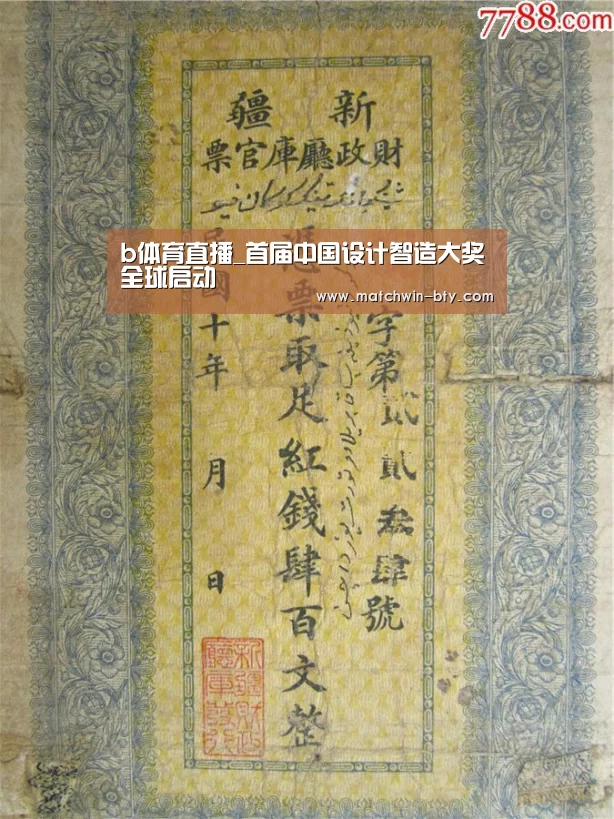 7788.com
新疆
財政廳庫官票
b体育直播_首届中国设计智造大奖
全球启动
www.matchwin-bty.com
字第貳貳叁肆號
憑票取足紅錢肆百文整
民國十年 月 日
新疆財政
廳庫發行